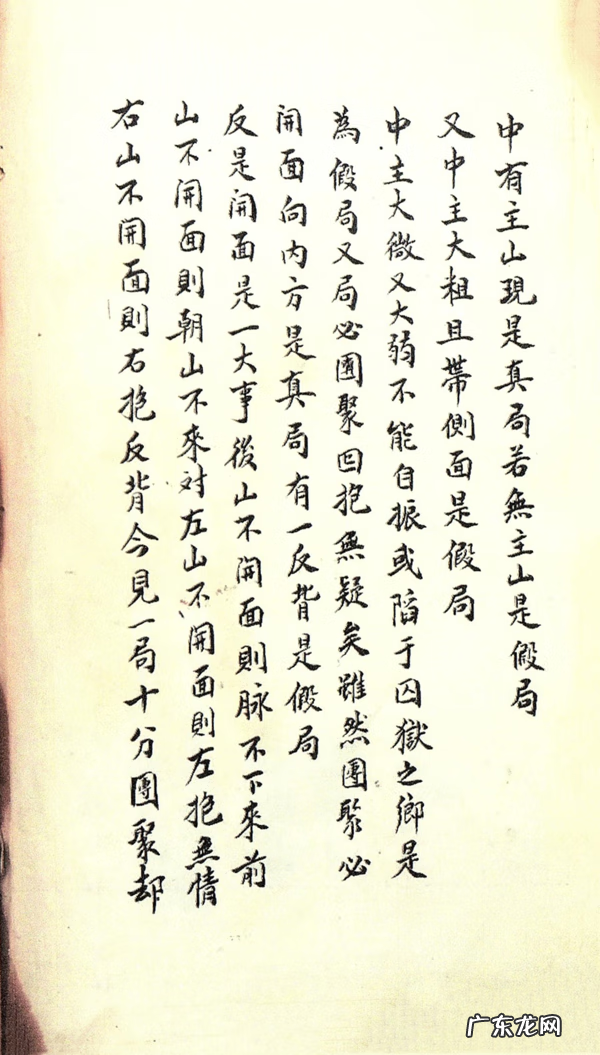 中有主山現是真局若無主山是假局
又中主大粗且帶側面是假局
中主大微又大弱不能自振或陷于囚獄之鄉是
為假局又局必團聚回抱無疑矣雖然團聚必
開面向内方是真局有一反背是假局
反是開面是一大事後山不開面則脉不下來前
山不開面則朝山不來対左山不開面則左抱無情
右山不開面則右抱反背今見一局十分團聚却
广东龙网